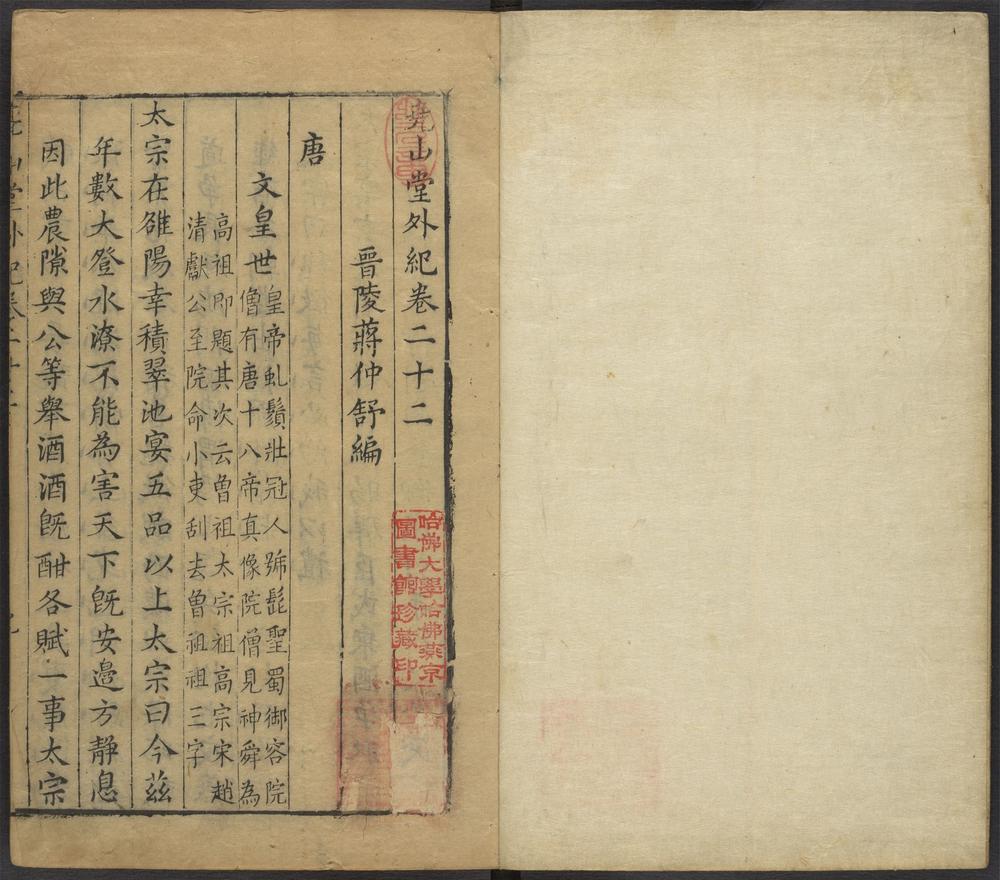 堯山堂外紀卷二十二
晉陵蔣仲舒編
唐
文皇世
皇帝虬鬚壯冠人號髭聖蜀御容院
僧有唐十八帝真像院僧見神舜為
高祖即題其次云曾祖太宗祖高宗宋趙
清獻公至院命小吏刮去曾祖祖三字
太宗在雒陽幸積翠池宴五品以上太宗曰今茲
年數大登水潦不能為害天下旣安邉方靜息
因此農隙與公等舉酒酒旣酣各賦一事太宗
哈佛大學哈佛燕京
圖書館珍藏印